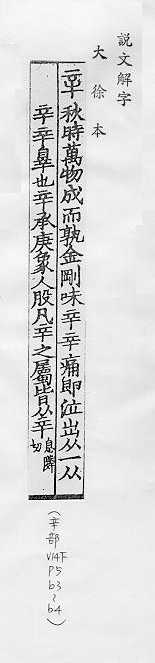 說文解字
大徐本
辛秋時萬物成而孰金剛味辛辛痛即泣出从一从
䇂䇂辠也辛承庚象人股凡辛之屬皆从辛息鄰
切
(辛部
V14下
P5
b3
~
b4)